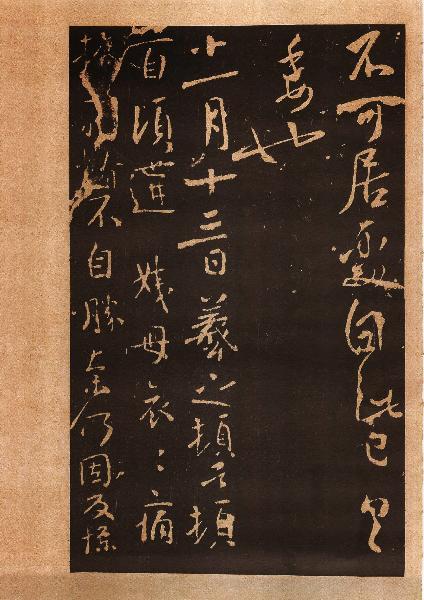 不可居處此已具
委也
十一月十三日羲之頓首頓
首頃遘姨母哀〻痛
摧剝情不自勝奈何因反慘